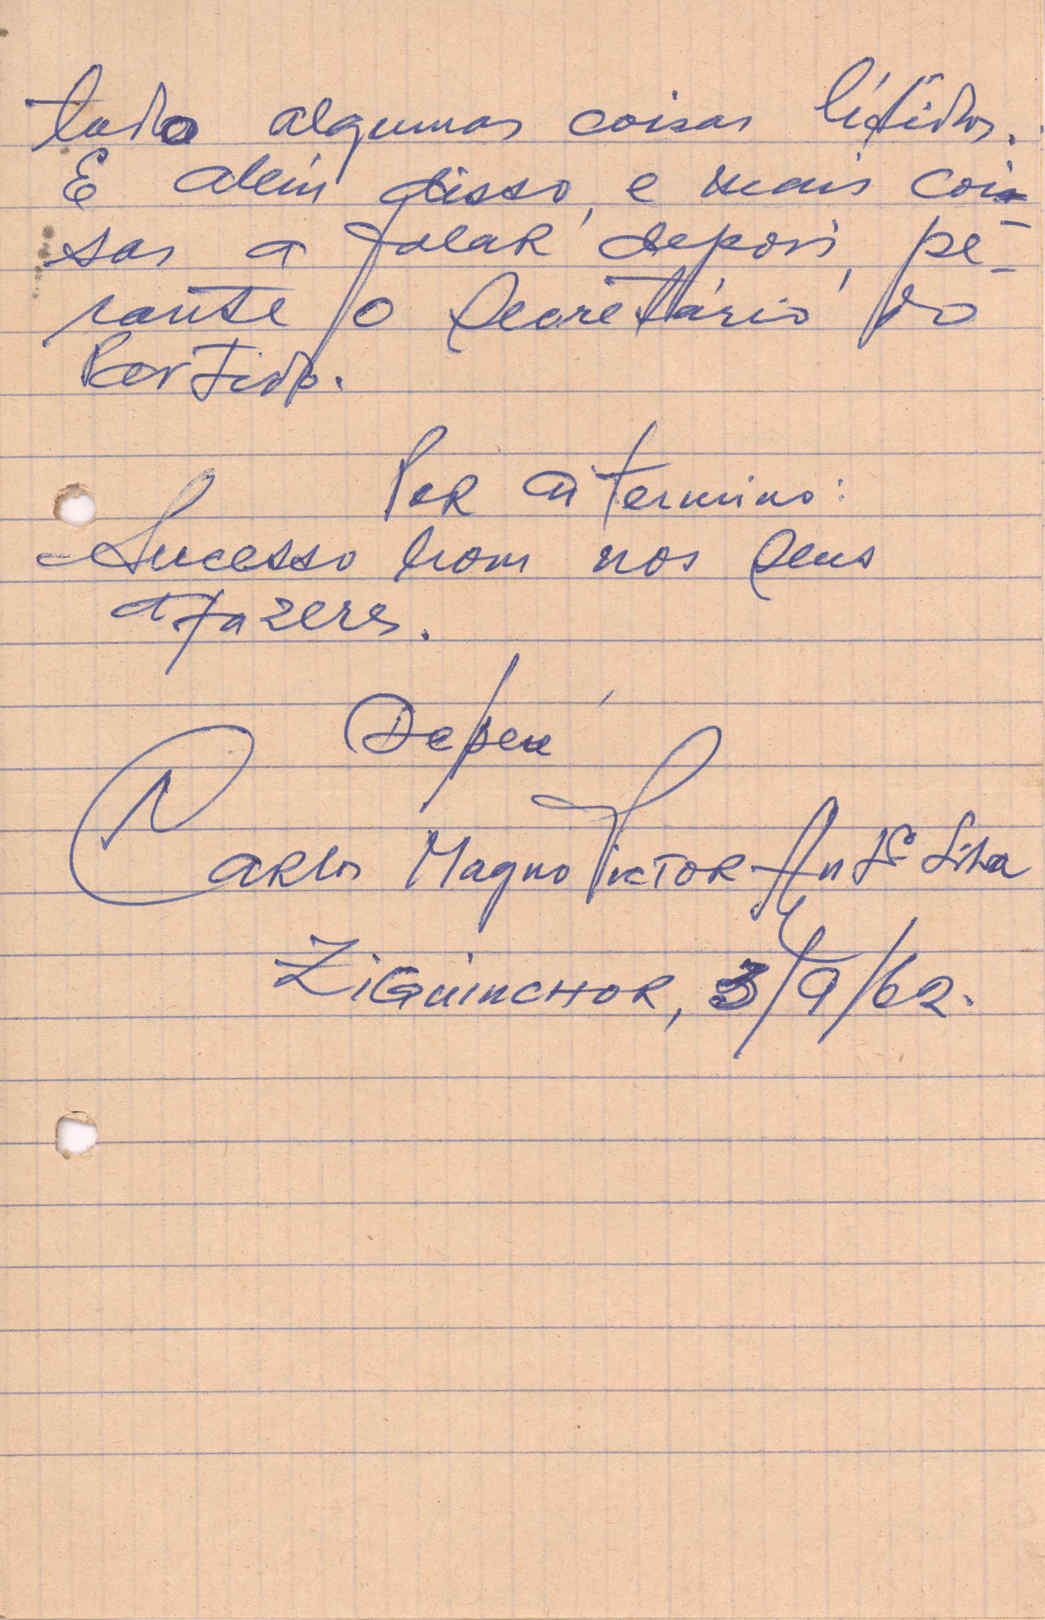 tado algumas coisas
E além disso, e mais coi-
sas a falar depois, pe-
rante o Secretário do
Partido.
Por aí termino:
Sucesso bom nos seus
afazeres.
Carlos Magno Victor
Ziguinchor, 3/9/62.